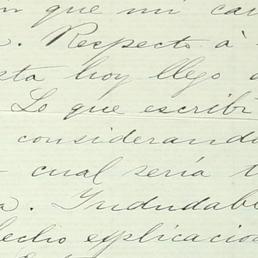 n que mi ca
. Respecto á
sta hoy llego a
Lo que escribi
considerando
cual sería t
a. Indudabl
hecho esplicacio